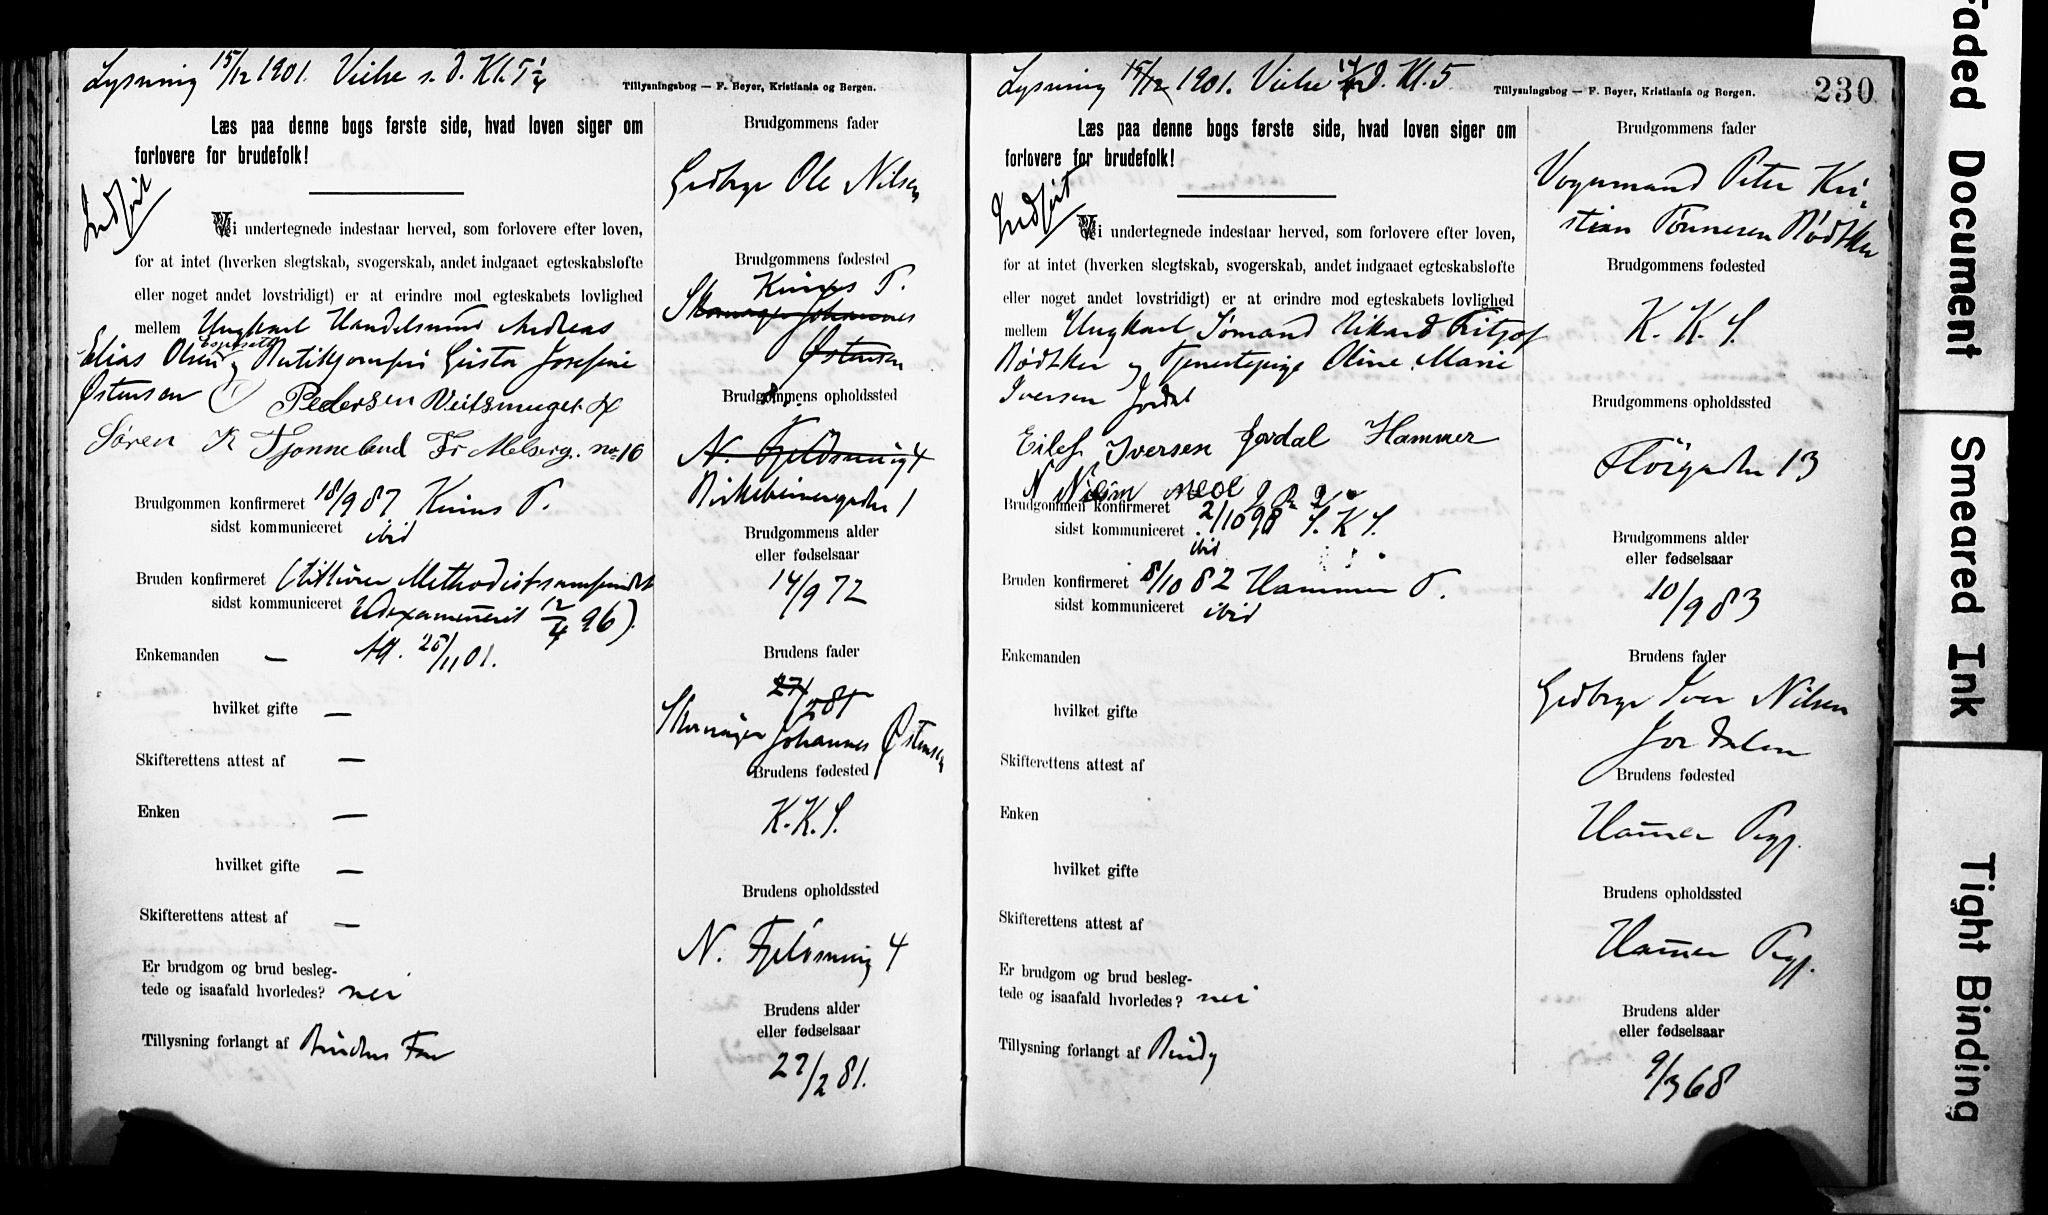 Lysning 15/12 1901. Vielse s. D. Kl.
Tillysningsbog — F. Beyer, Kristiania og Bergen.
Læs paa denne bogs første side, hvad loven siger om
forlovere for brudefolk!
Indført
Vi undertegnede indestaar herved, som forlovere efter loven,
for at intet (hverken slegtskab, svogerskab, andet indgaaet egteskabsløfte
eller noget andet lovstridigt) er at erindre mod egteskabets lovlighed
mellem Ungkarl Handelsmand Andreas
Elias Olsen og Butikjomfru Gusta Josefine
Østensen
Pedersen
Søren K Tjønneland
Brudgommen konfirmeret 18/9 87 Kinns P.
sidst kommuniceret ibid
Bruden konfirmeret (tilhører Methodistsamfundet
sidst kommuniceret Udexamineret 12/4 96).
Att. 25/11 01.
Enkemanden —
hvilket gifte —
Skifterettens attest af —
Enken —
hvilket gifte —
Skifterettens attest af —
Er brudgom og brud besleg-
tede og isaafald hvorledes? nei
Tillysning forlangt af Brudens Far
Brudgommens fader
Grdbrgr Ole Nilsen
Brudgommens fødested
Kinns P.
Skomager Johannes
Østensen
Brudgommens opholdssted
N. Fjeldsmug 4
Birkebeinergaden 1
Brudgommens alder
eller fødselsaar
14/9 72
Brudens fader
27/2 81
Skomager
Johannes Østensen
Brudens fødested
K.K.S.
Brudens opholdssted
N. Fjeldsmug 4
Brudens alder
eller fødselsaar
27/2 81.
Lysning 15/12 1901. Vielse D. Kl. 5
Tillysningsbog — F. Beyer, Kristiania og Bergen.
230
Læs paa denne bogs første side, hvad loven siger om
forlovere for brudefolk!
Indført
Vi undertegnede indestaar herved, som forlovere efter loven,
for at intet (hverken slegtskab, svogerskab, andet indgaaet egteskabsløfte
eller noget andet lovstridigt) er at erindre mod egteskabets lovlighed
mellem Ungkarl Sømand Rikard Fritjof
Rødtker og Tjenestepige Oline Marie
Iversen Jordal
Eilef Iversen Jordal Hammer
Brudgommen konfirmeret 2/10 98 S. K. S.
sidst kommuniceret ibid
Bruden konfirmeret 8/10 82 Hammer P.
sidst kommuniceret ibid
Enkemanden
hvilket gifte
Skifterettens attest af
Enken
hvilket gifte
Skifterettens attest af
Er brudgom og brud besleg-
tede og isaafald hvorledes? nei
Tillysning forlangt af Brudg
Brudgommens fader
Vognmand Peter Kri-
stian Tønnesen Rødtker
Brudgommens fødested
K. K. S.
Brudgommens opholdssted
13
Brudgommens alder
eller fødselsaar
10/9 83
Brudens fader
Grdbrgr Iver Nilsen
Jordalen
Brudens fødested
Hamer Prgj.
Brudens opholdssted
Hamer Prgj.
Brudens alder
eller fødselsaar
9/3 68
Faded Document
Smeared Ink
Tight Binding